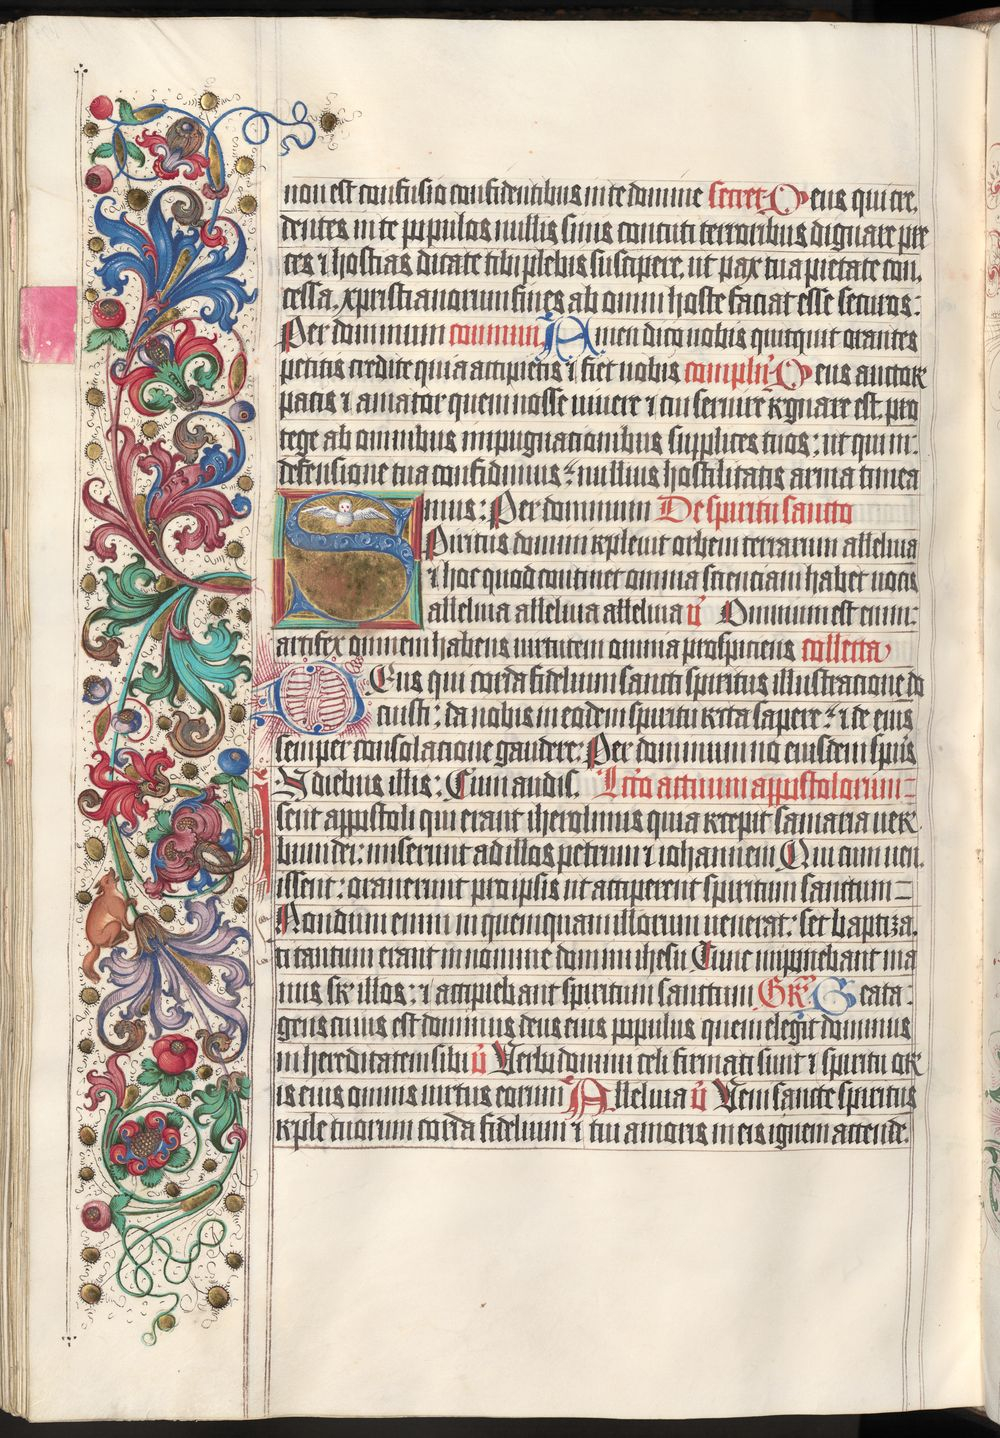 non est confusio confidentibus in te domine secret Deus qui cre-
dentes in te populos nullis sinis concuti terroribus dignare pre
ces ⁊ hostias dicate tibi plebis suscipere, ut pax tua pietate con-
cessa, xpristianorum fines ab omni hoste faciat esse securos:
Per dominum commun̄ Amen dico vobis quitquit orantes
petitis credite quia accipietis ⁊ fiet vobis complēn Deus auctor
pacis ⁊ amator quem nosse vivere ⁊ cui servire regnare est, pro
tege ab omnibus inpugnacionibus supplices tuos; ut qui in
defensione tua confidimus: nullius hostilitatis arma timea
mus: Per dominum De spiritu sancto
Spiritus domini replevit orbem terrarum alleluia
⁊ hoc quod continet omnia scienciam habet vocis
alleluia alleluia alleluia v̄ Omnium est enim
artifex omnem habens virtutem omnia prospiciens collecta
Deus qui corda fidelium sancti spiritus illustracione do
cuisti: da nobis in eodem spiritu recta sapere: ⁊ de eius
semper consolacione gaudere; Per dominum nō eiusdem spūs
In diebus illis: Cum audis. Lc̄o actuum appostolorum
sent appostoli qui erant iherolimis quia recepit samaria ver-
bum dei: miserunt ad illos petrum ⁊ iohannem Qui cum ven
issent: oraverunt pro ipsis ut acciperent spiritum sanctum
Nondum enim in quemquam illorum venerat: set baptiza-
ti tantum erant in nomine domini ihesu Tunc imponebant ma
nus sr illos: ⁊ accipiebant spiritum sanctum Gr̄ Beata
gens cuius est dominus deus eius populus quem elegit dominus
in hereditatem sibi v̄ Verbo domini celi firmati sunt ⁊ spiritu or
is eius omnis virtus eorum Alleluia v̄ Veni sancte spiritus
reple tuorum corda fidelium ⁊ tui amoris in eis ignem accende.